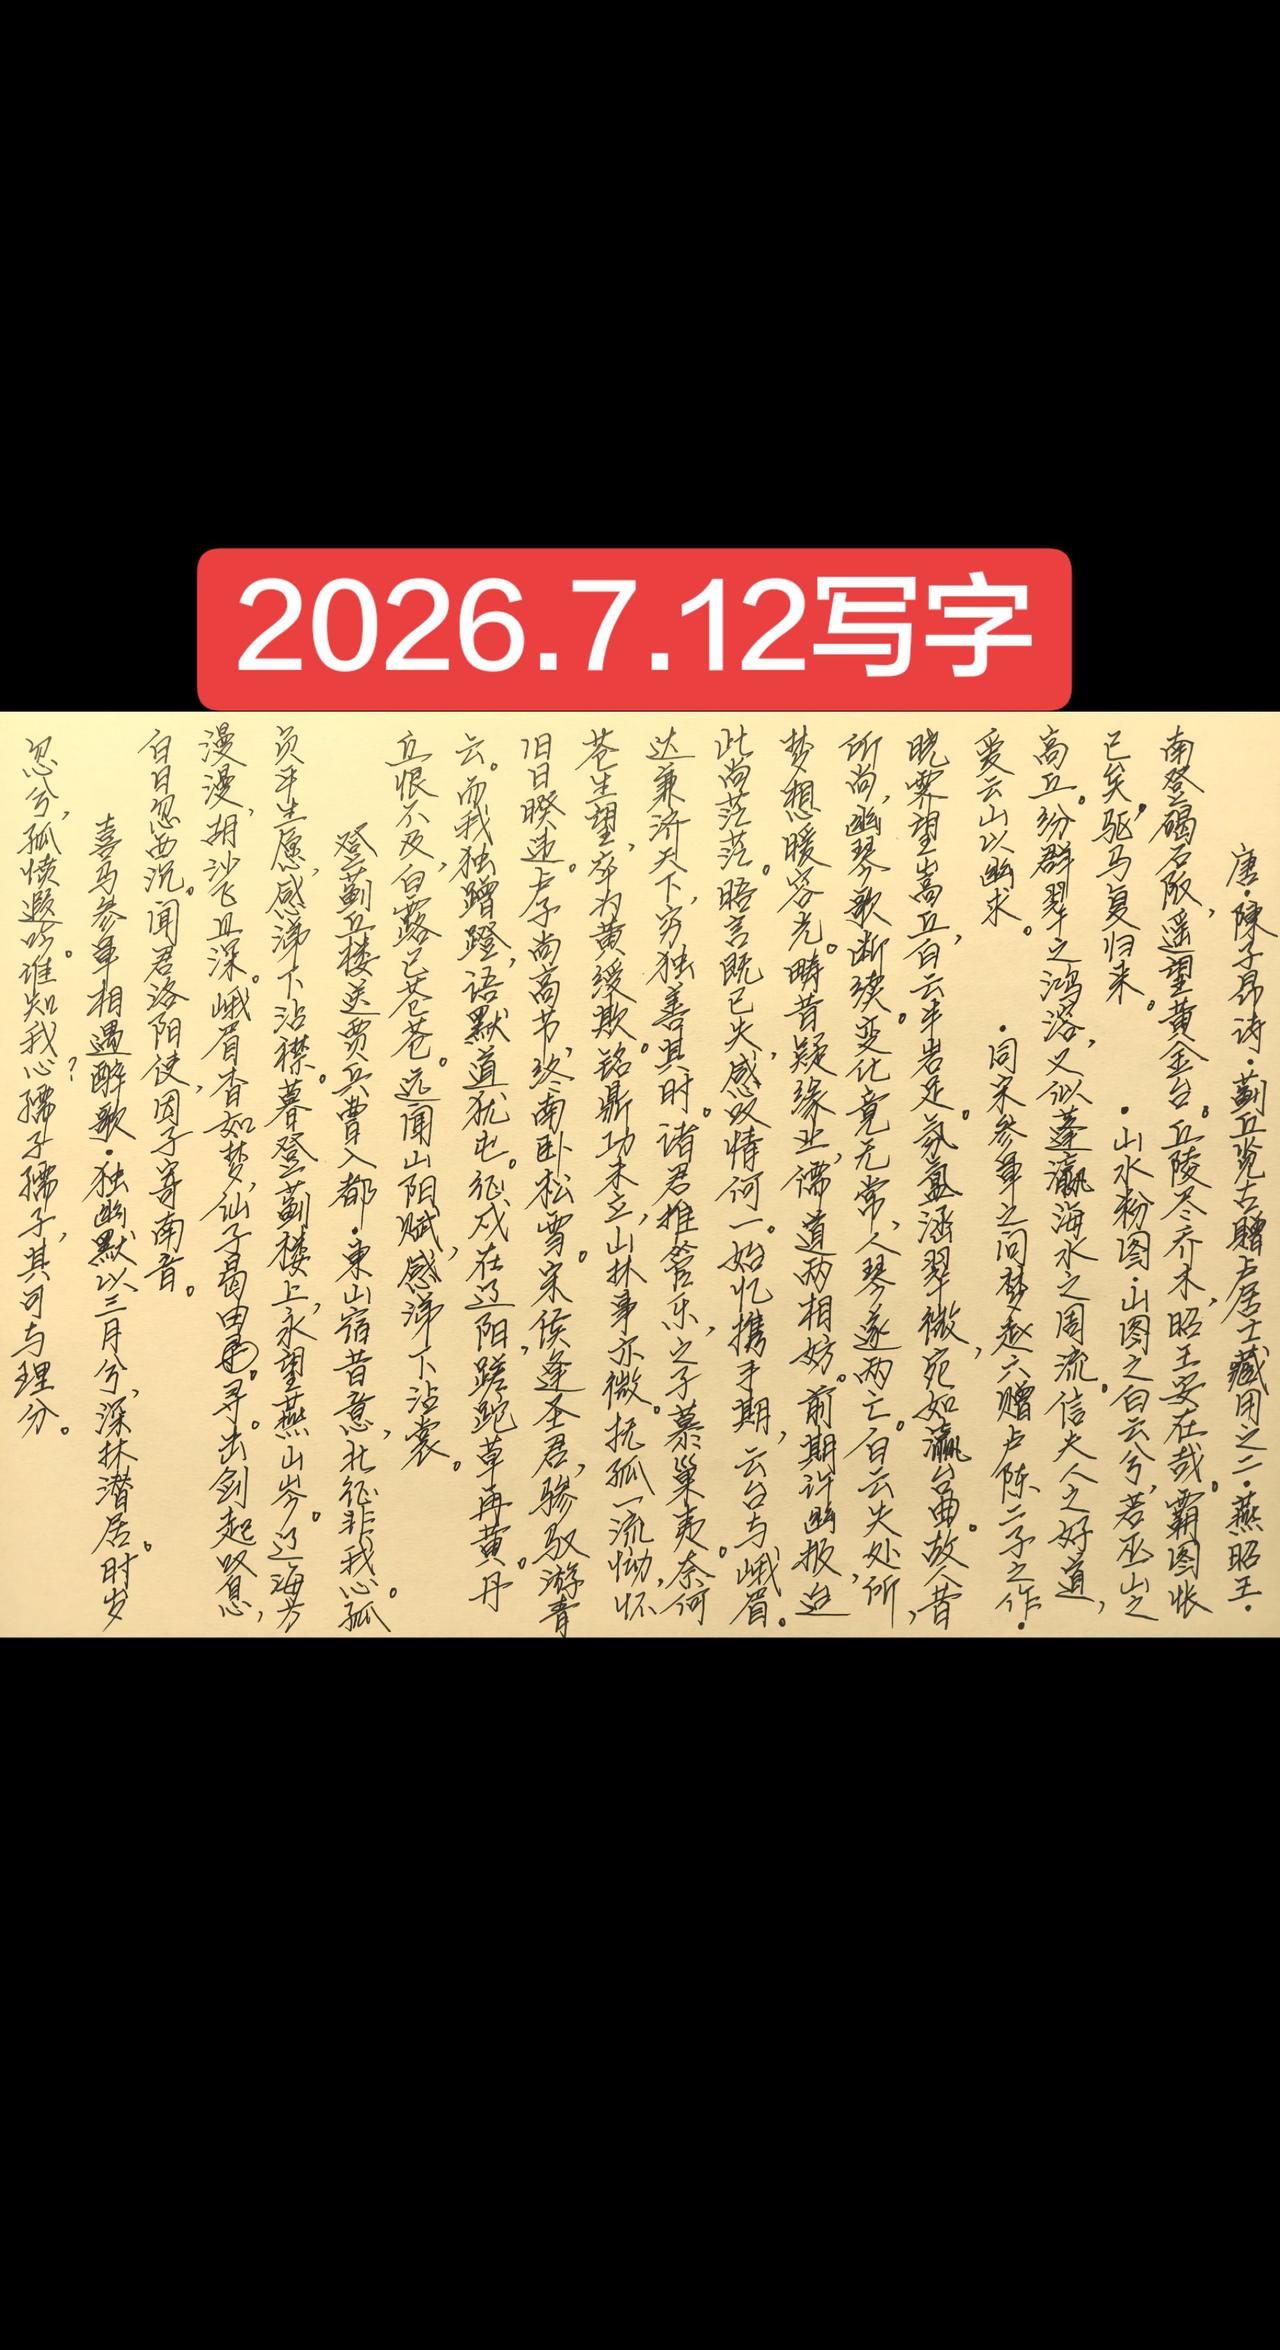 2026.7.12写字
唐·陳子昂诗·蓟丘览古贈卢居士藏用之二·燕昭王·
南登碣石阪，遥望黄金台。丘陵尽乔木，昭王安在哉。霸图怅
已矣，驱马复归来。 ·山水粉图·山图之白云兮，若巫山之
高丘。纷群翠之鸿溶，又似蓬瀛海水之周流。信夫人之好道，
爱云山以幽求。 ·同宋参军之问梦赵六赠卢陈二子之作·
晓霁望嵩丘，白云半岩足。氛氲涵翠微，宛如瀛台曲。故人昔
所尚，幽琴歌断续。变化竟无常，人琴遂两亡。白云失处所，
梦想暖容光。畴昔疑缘业，儒道两相妨。前期许幽报，迨
此尚茫茫。晤言既已失，感叹情何一。始忆携手期，云台与峨眉。
达兼济天下，穷独善其时。诸君推管乐，之子慕巢夷。奈何
苍生望，卒为黄绶欺。铭鼎功未立，山林事亦微。抚孤一流恸，怀
旧日暌违。卢子尚高节，终南卧松雪。宋侯逢圣君，骖驭游青
云。而我独蹭蹬，语默道犹屯。征戍在辽阳，蹉跎草再黄。丹
丘恨不及，白露已苍苍。远闻山阳赋，感涕下沾裳。
登蓟丘楼送贾兵曹入都·東山宿昔意，北征非我心。孤
负平生愿，感涕下沾襟。暮登蓟楼上，永望燕山岑。辽海方
漫漫，胡沙飞且深。峨眉杳如梦，仙子曷由。寻。出剑起叹息，
白日忽西沉。闻君洛阳使，因子寄南音。
喜马参军相遇醉歌·独幽默以三月兮，深林潜居。时岁
忽兮，孤愤遐吟。谁知我心？孺子孺子，其可与理分。